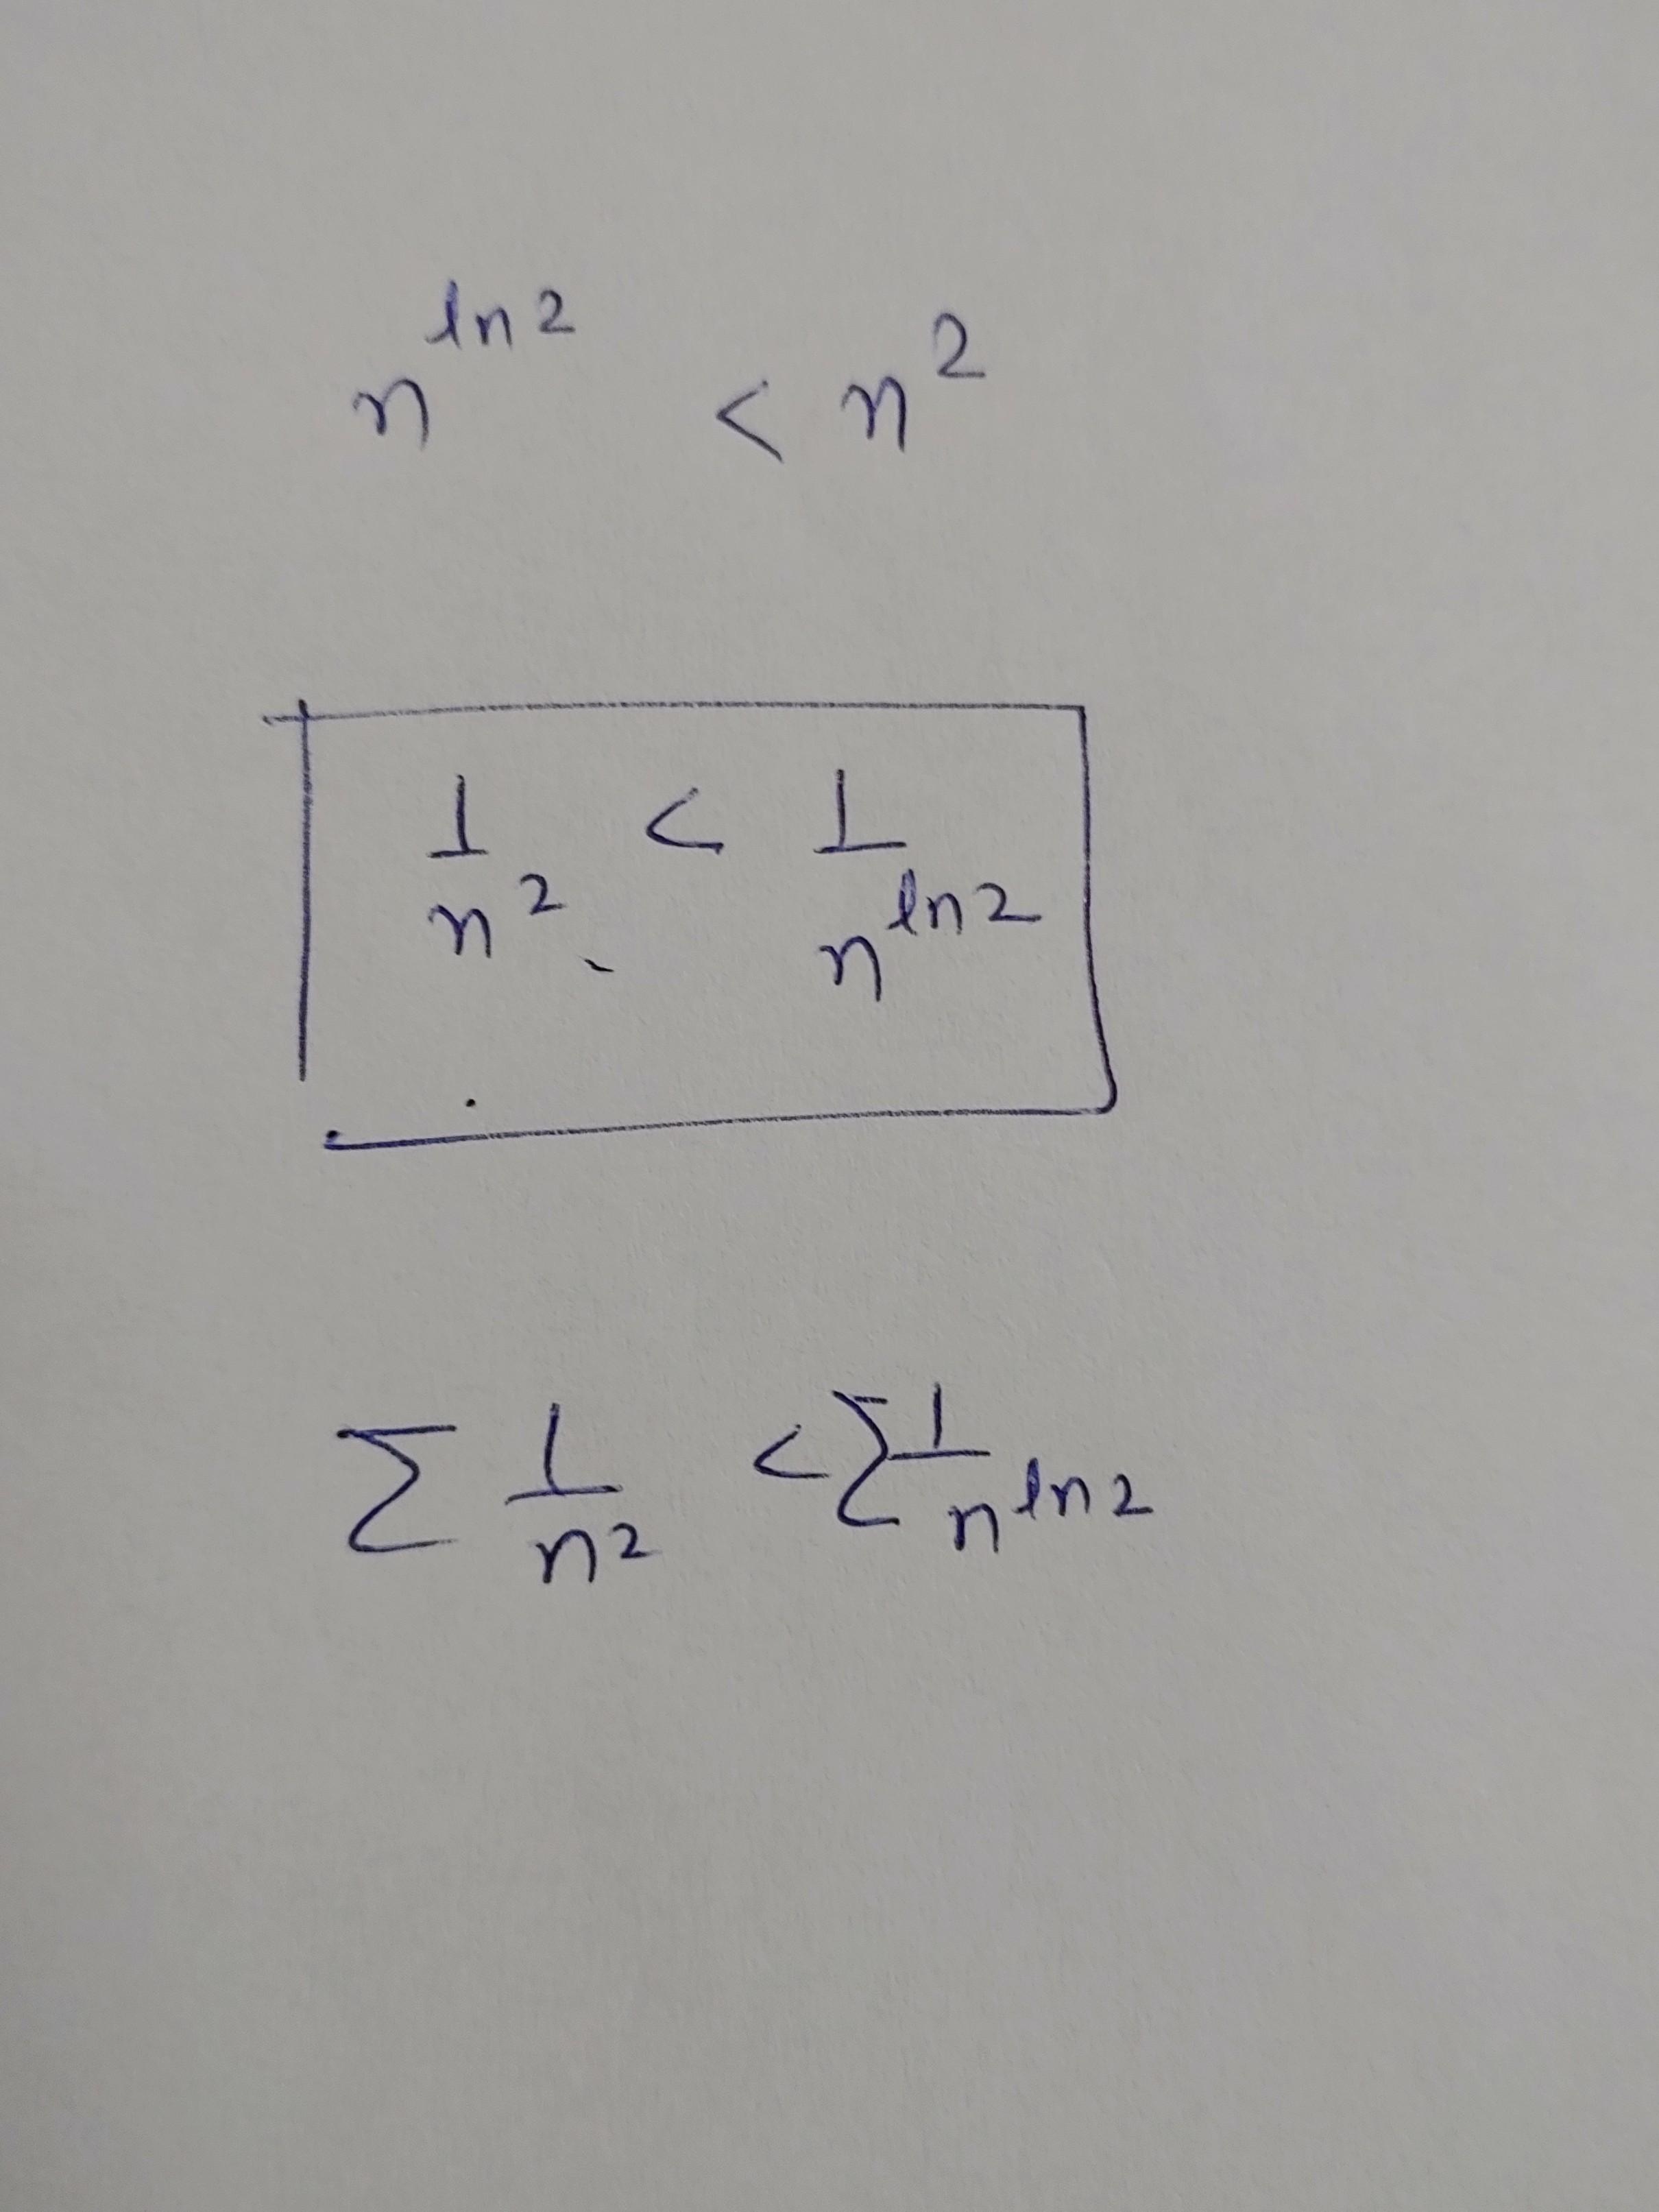 n^{ln2} < n^2
1/n^2 < 1/n^{ln2}
∑ 1/n^2 < ∑ 1/n^{ln2}